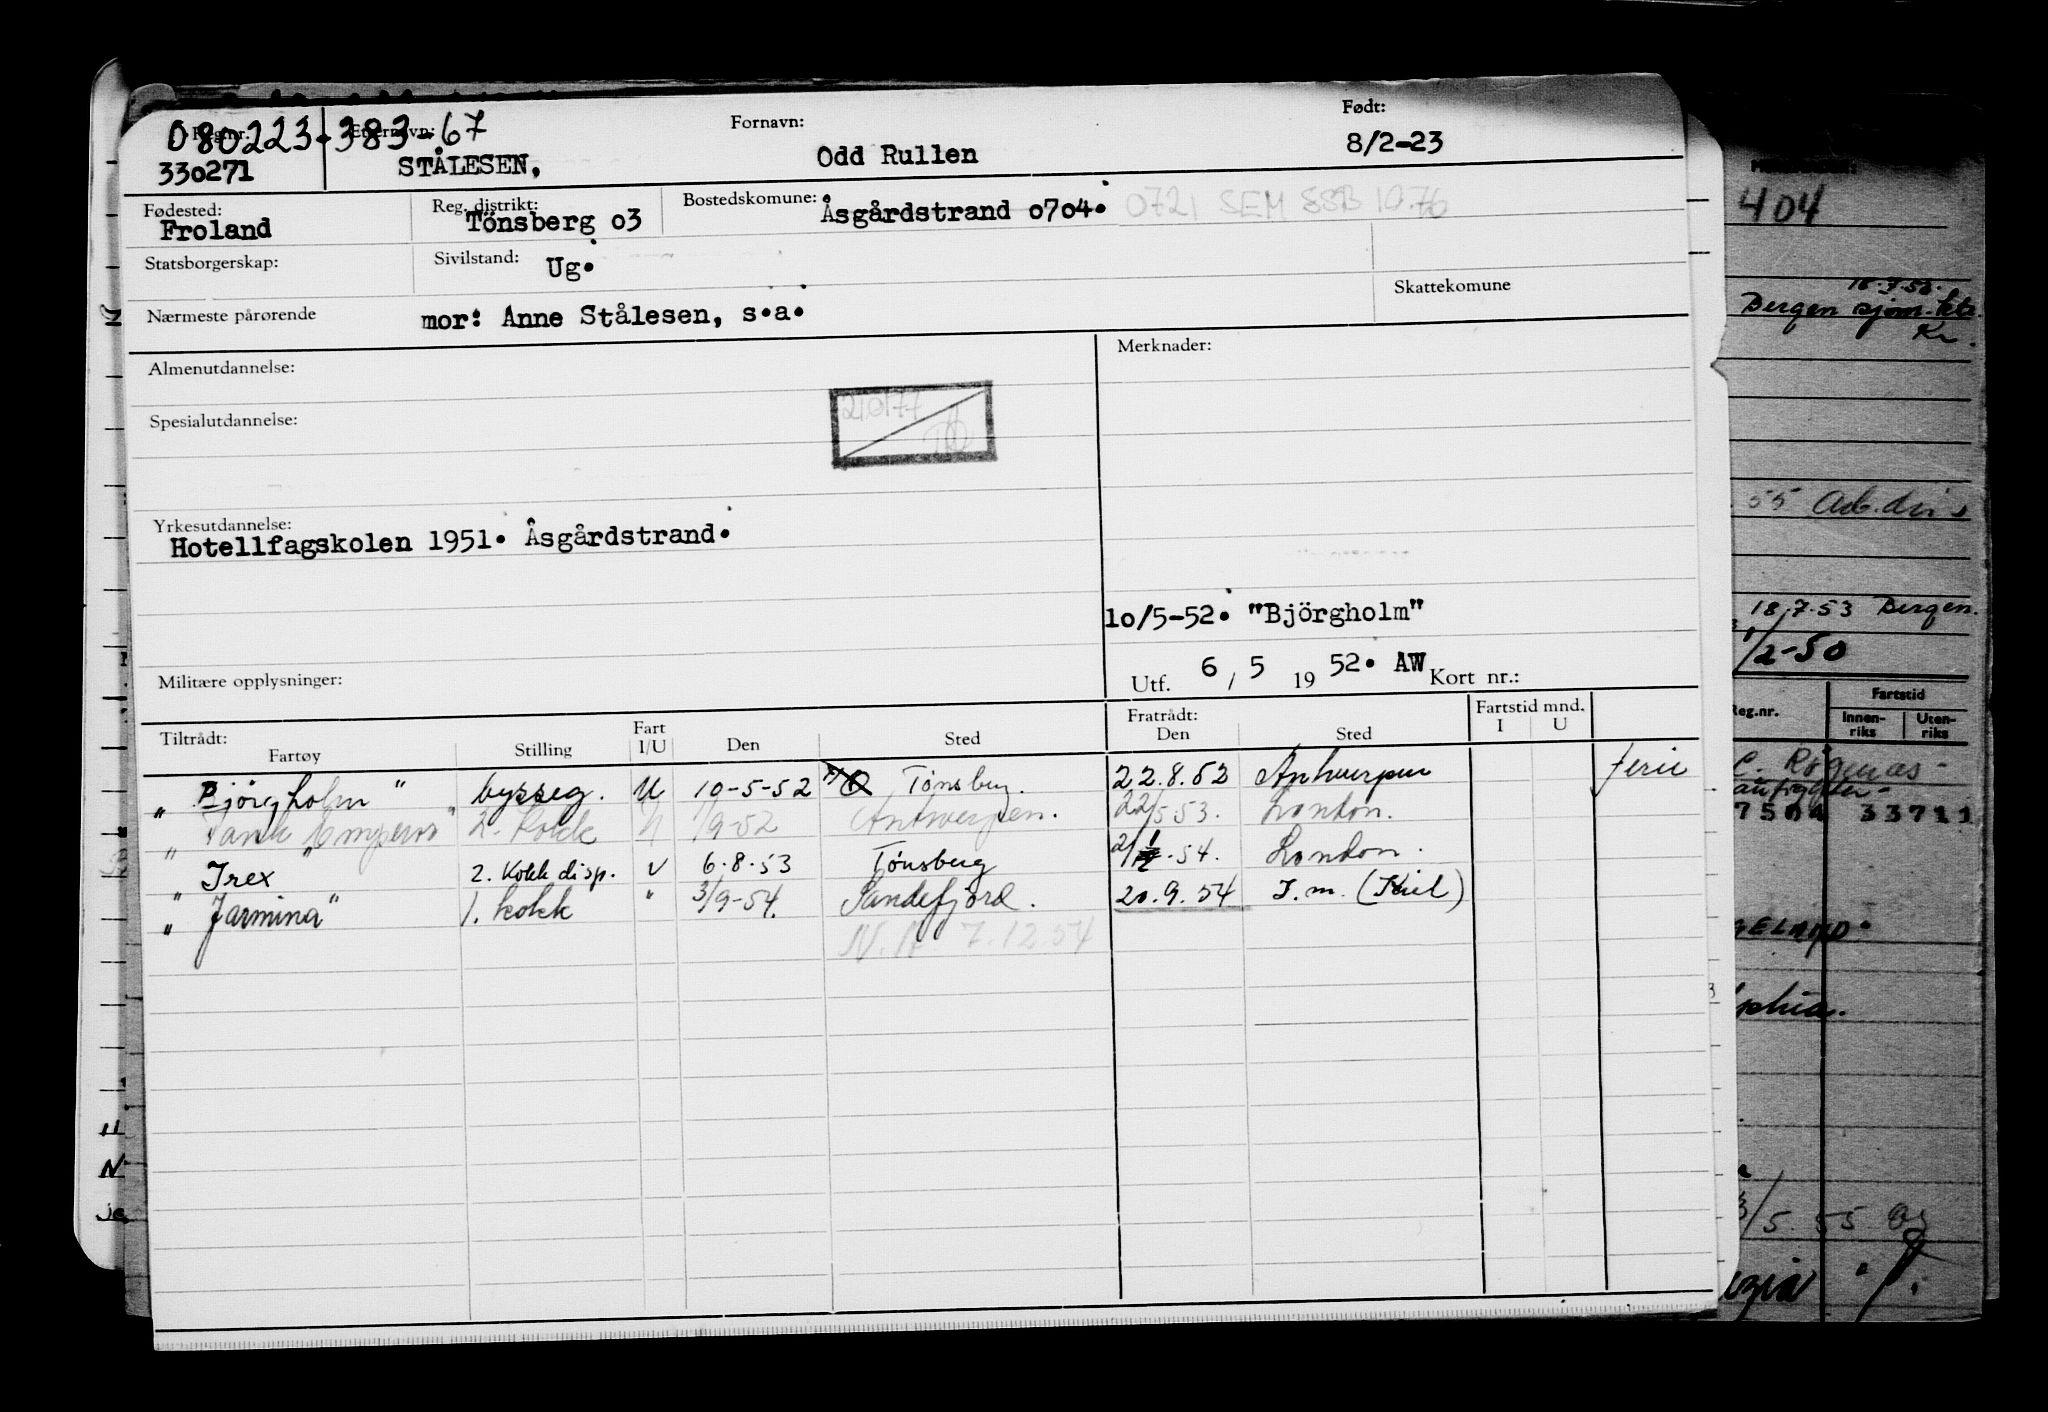 080223-383-67
Regnr. Etternavn: Fornavn: Født:
330271 STÅLESEN, Odd Rullen 8/2-23
Fødested: Reg. distrikt: Bostedskomune:
Froland Tönsberg 03 Åsgårdstrand 0704. 0721 SEM SSB 10.76
Statsborgerskap: Sivilstand: Ug.
Nærmeste pårørende mor: Anne Stålesen, s.a. Skattekomune
Almenutdannelse: Merknader:
Spesialutdannelse:
Yrkesutdannelse:
Hotellfagskolen 1951. Åsgårdstrand.
10/5-52. "Björgholm"
Militære opplysninger: Utf. 6 / 5 19 52. AW Kort nr.:
Tiltrådt: Fratrådt: Fartstid mnd.
Fartøy Stilling Fart I/U Den Sted Den Sted I U
" Björgholm " bysseg. U 10-5-52 Tönsberg. 22.8.52 Antwerpen ferie
" Tank Emperor " 2. kokk U 1/9-52 Antwerpen. 22/5 53. London.
" Irex " 2. Kokk disp. U 6.8.53 Tønsberg 54. London.
" Jarmina " 1. kokk " 3/9-54. Sandefjord. 20.9.54 I.m. (Kiel)
N.A 7.12.54
404
Bergen sjøm.ktr.
Kr.
55
18.7.53 Bergen.
1/2-50
Reg.nr. Fartstid
Innenriks Utenriks
33711
GELAND.
5.55